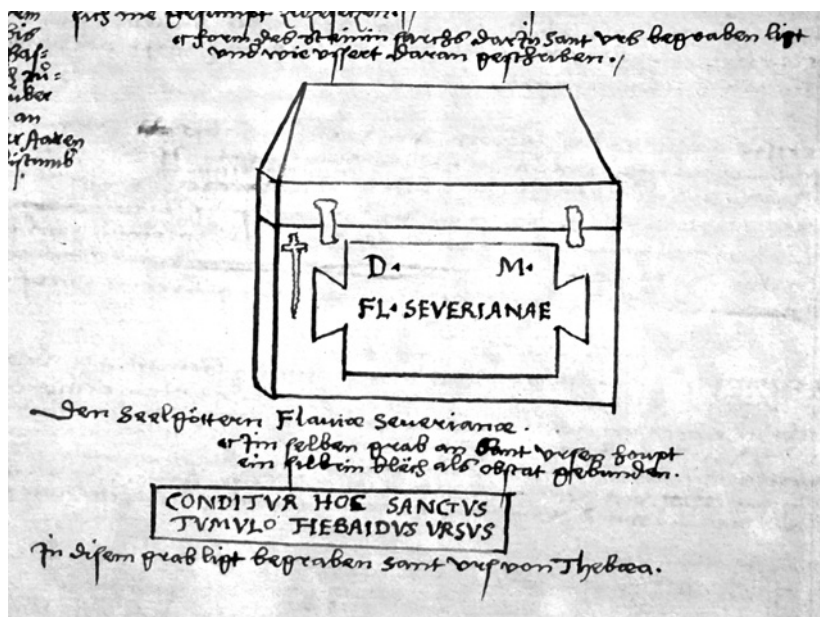 sich me gestimpt
form des steinin sarchs darin Sant Urs begraben ligt
und wie ussert daran geschriben.
an
D. M.
FL. SEVERIANAE
den Seelgöttern Flaviæ Severianæ.
Im selben grab an Sant Ursen houpt
ein silbrin blech als obstat gebunden.
CONDITVR HOC SANCTVS
TVMVLO THEBAIDVS VRSVS
In disem grab ligt begraben Sant Urs von Thebæa.